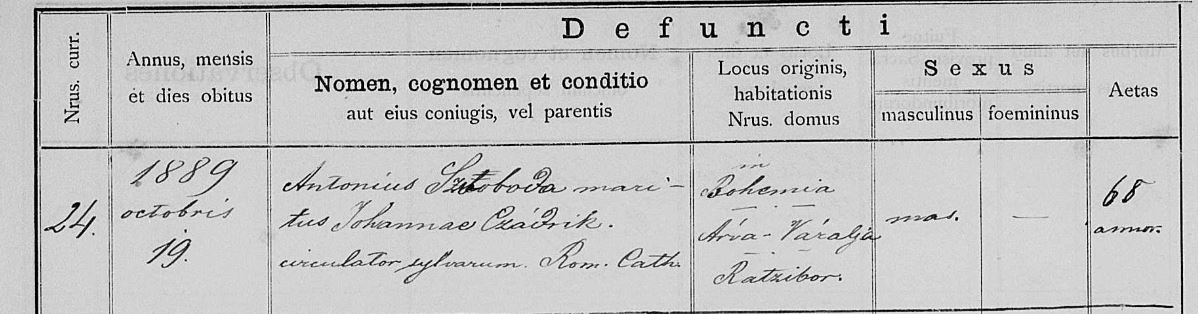 Defuncti
Nrus. curr.
Annus, mensis
et dies obitus
Nomen, cognomen et conditio
aut eius coniugis, vel parentis
Locus originis,
habitationis
Nrus. domus
Sexus
masculinus
foemininus
Aetas
24.
1889
octobris
19.
Antonius Szloboda mari-
tus Johannae Czádrik.
circulator sylvarum. Rom. Cath.
in
Bohemia
Árva-Váralja
Ratzibor.
mas.
—
68
annor.